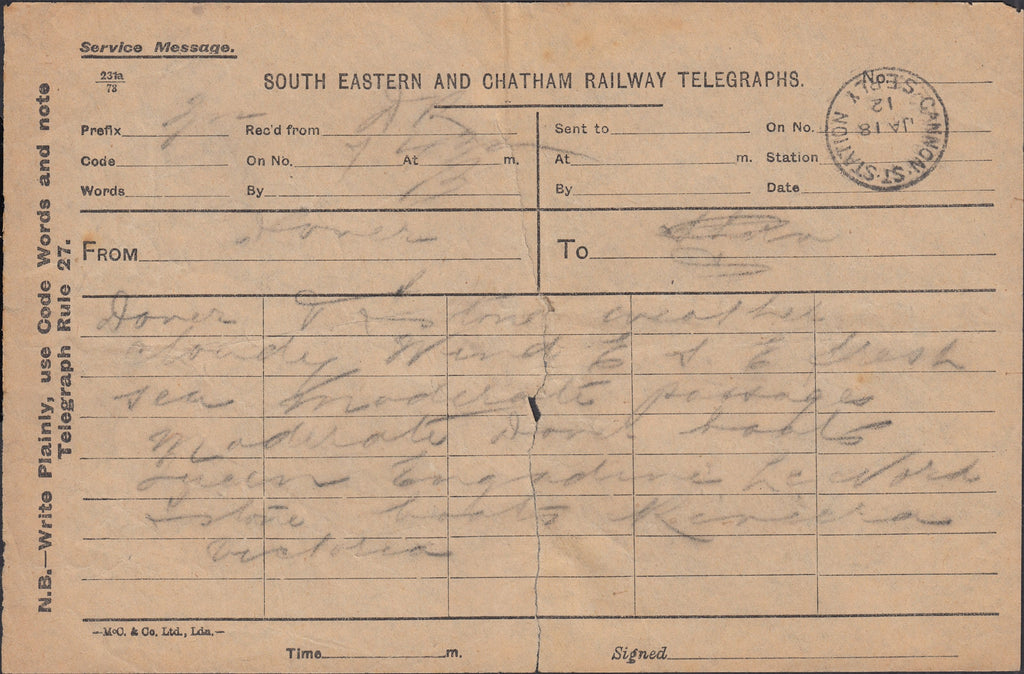 Service Message.
231a
73
SOUTH EASTERN AND CHATHAM RAILWAY TELEGRAPHS.
No.
CANNON·ST·STATION S.E.RLY
JA 18
12
Prefix Rec'd from Sent to On No.
Code On No. At m. At m. Station
Words By By Date
FROM Dover To
Dover stone weather
cloudy Wind E S E fresh
sea moderate passages
moderate Dover boats
Queen Engadine Le Nord
stone boats Riviera
Victoria
N.B.—Write Plainly, use Code Words and note
Telegraph Rule 27.
—McC. & Co. Ltd., Ldn.—
Time m. Signed